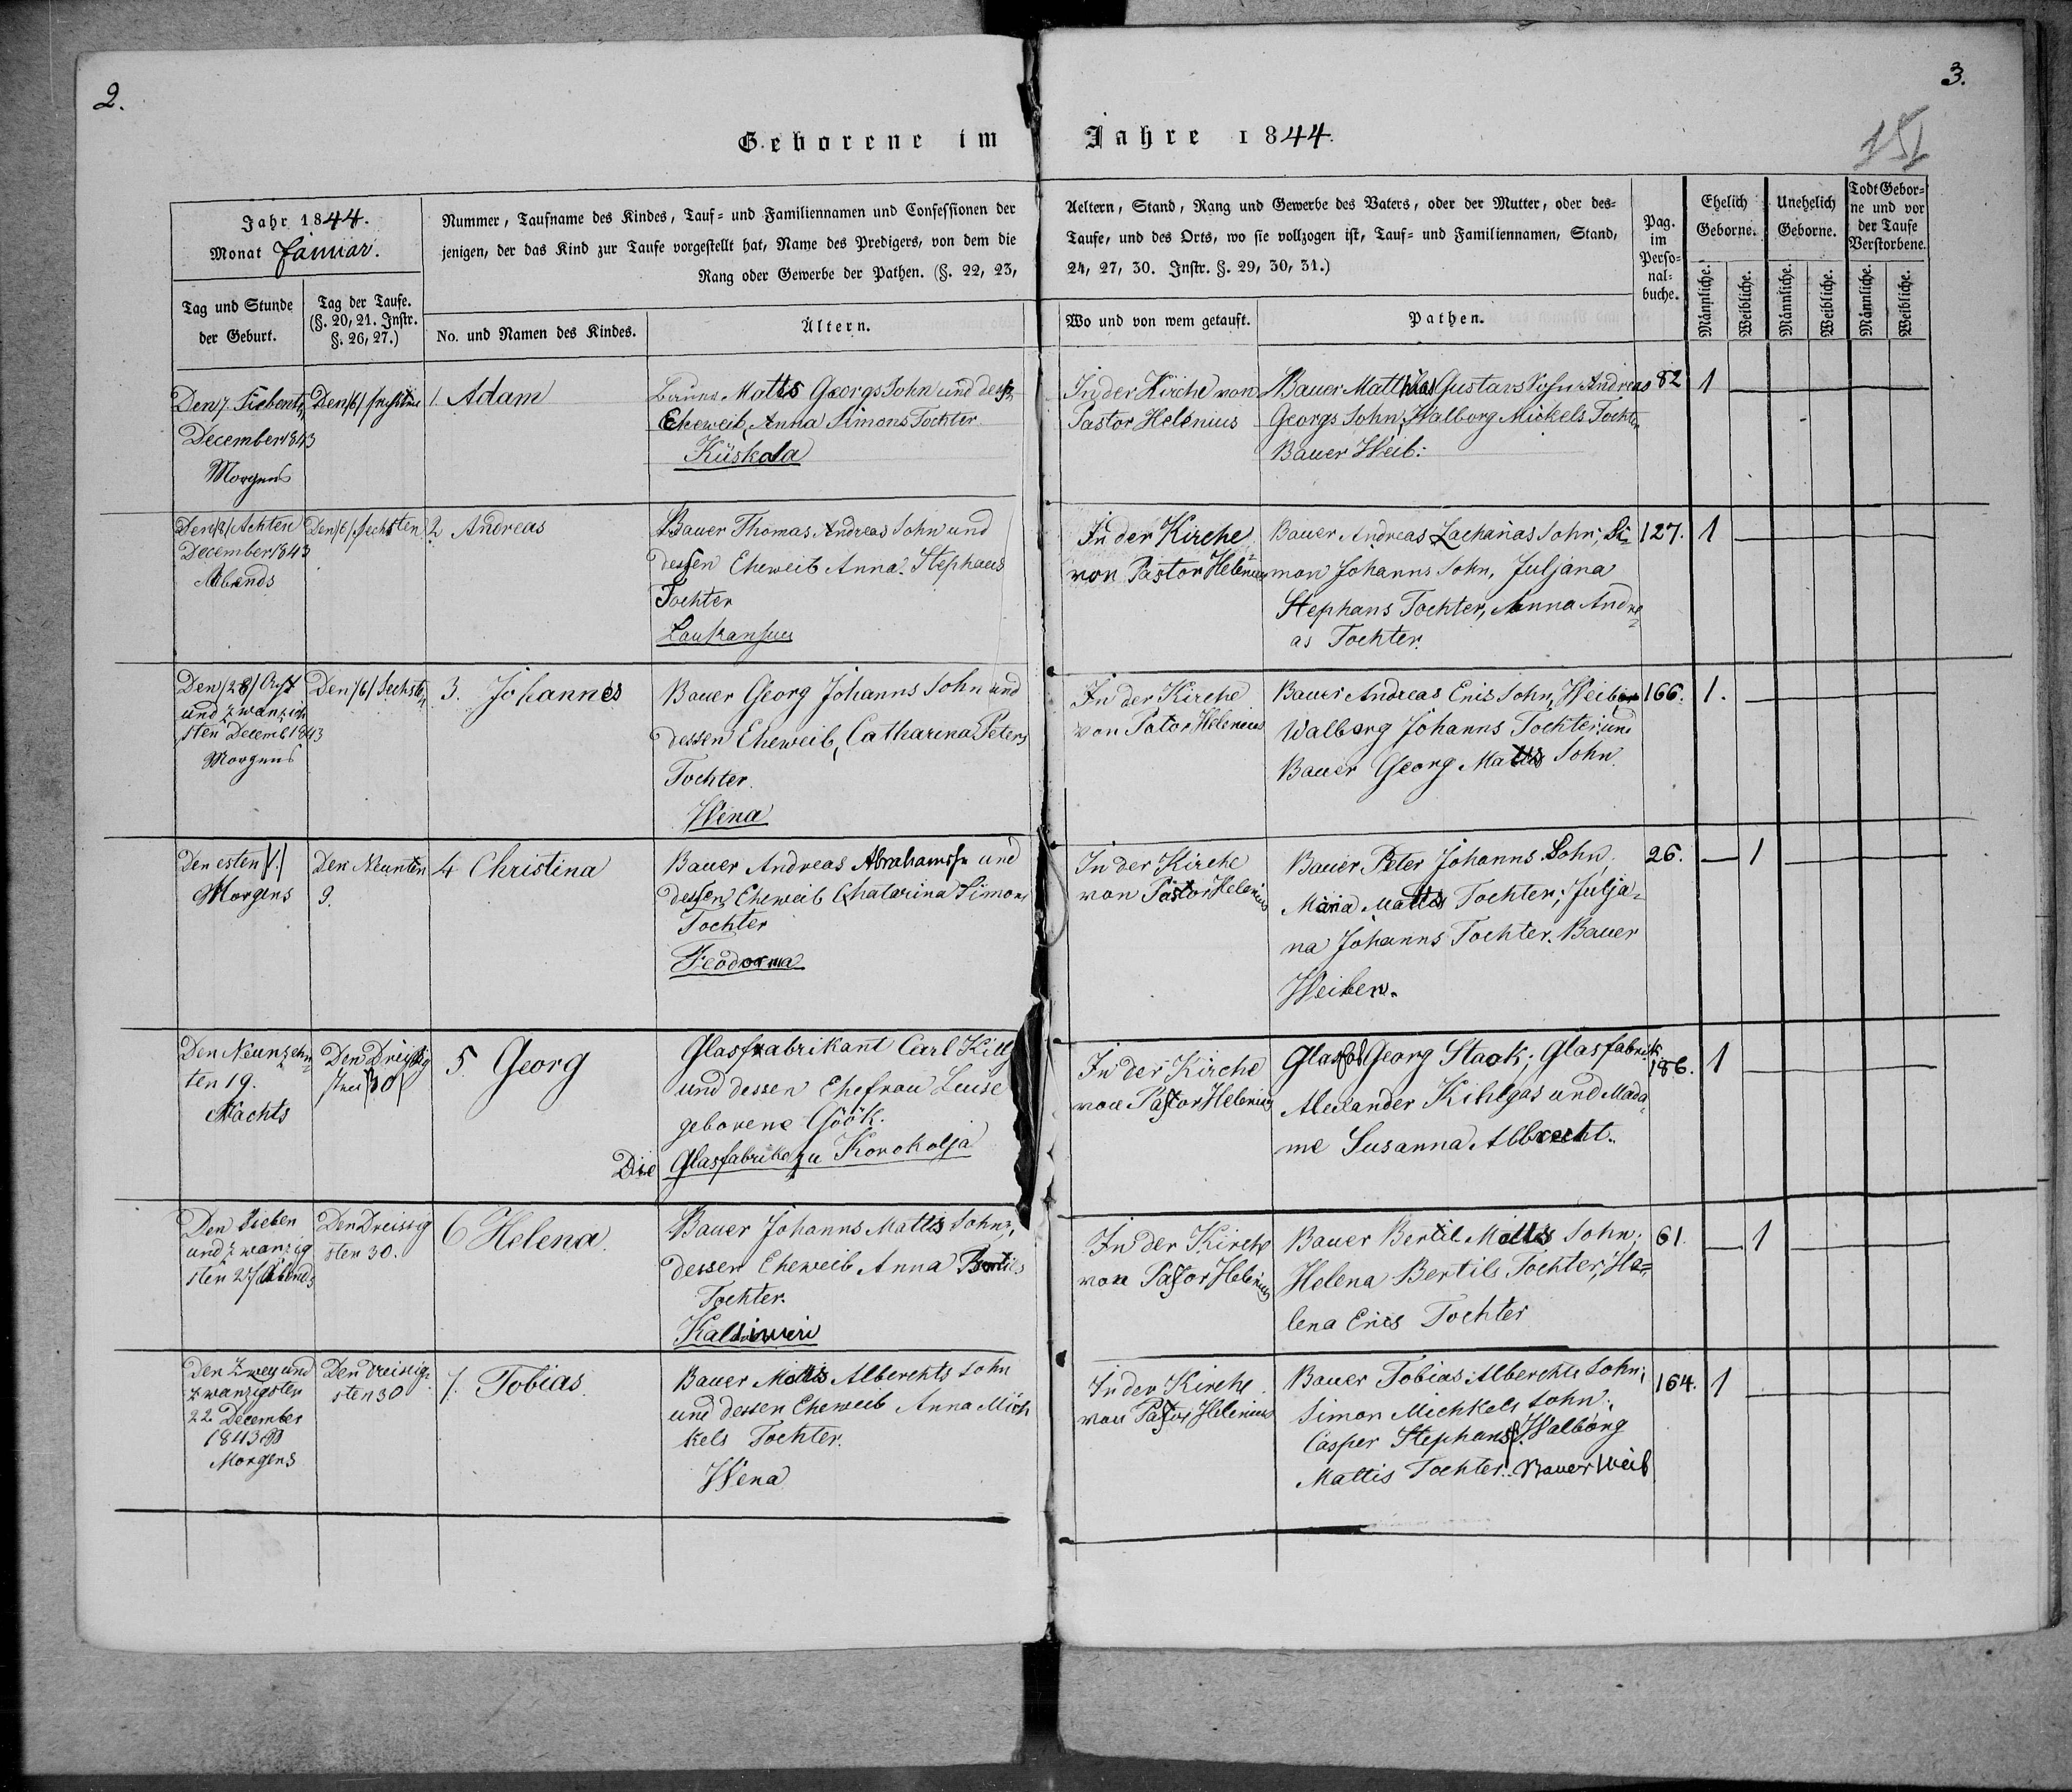 2.
3.
151
Geborene im Jahre 1844.
Jahr 1844.
Monat Januar.
Nummer, Taufname des Kindes, Tauf- und Familiennamen und Confessionen der
jenigen, der das Kind zur Taufe vorgestellt hat, Name des Predigers, von dem die
Rang oder Gewerbe der Pathen. (§. 22, 23,
Aeltern, Stand, Rang und Gewerbe des Vaters, oder der Mutter, oder des-
Taufe, und des Orts, wo sie vollzogen ist, Tauf- und Familiennamen, Stand,
24, 27, 30. Instr. §. 29, 30, 31.)
Pag.
im
Perso-
nal-
buche.
Ehelich
Geborne.
Unehelich
Geborne.
Todt Gebor-
ne und vor
der Taufe
Verstorbene.
Tag und Stunde
der Geburt.
Tag der Taufe.
(§. 20, 21. Instr.
§. 26, 27.)
No. und Namen des Kindes.
Ältern.
Wo und von wem getauft.
Pathen.
Männliche.
Weibliche.
Männliche.
Weibliche.
Männliche.
Weibliche.
Den 7 Siebenten
December 1843
Morgens
Den /6/ sechsten
1. Adam
Matts Georgs Sohn und
Eheweib, Anna Simons Tochter
Küskola
In der Kirche von
Pastor Helenius
Bauer Matthias Gustavs Sohn Andreas
Georgs Sohn; Walborg Mickels Tochter
Bauer Weib:
82
1
Den /8/ Achten
December 1843
Abends
Den /6/ Sechsten
2. Andreas
Bauer Thomas Andreas Sohn und
dessen Eheweib Anna Stephans
Tochter
Laukansuu
In der Kirche
von Pastor Helenius
Bauer Andreas Zacharias Sohn; Si-
mon Johanns Sohn, Juljana
Stephans Tochter, Anna Andre
as Tochter.
127.
1
Den /28/ Acht
und zwanzich
sten Decemb 1843
Morgens
Den /6/ Sechsten
3. Johannes
Bauer Georg Johanns Sohn und
dessen Eheweib, Catharina Peters
Tochter.
Wena
In der Kirche
von Pator Helenius
Bauer Andreas Eris Sohn, Weiber
Walborg Johanns Tochter und
Bauer Georg Mattis Sohn.
166.
1.
Den esten /1./
Morgens
Den Neunten
9.
4 Christina
Bauer Andreas Abrahams und
dessen Eheweib Chatarina Simons
Tochter
Feodorma
In der Kirche
von Pastor Helenius
Bauer Peter Johanns Sohn,
Maria Mattis Tochter; Julja-
na Johanns Tochter. Bauer
Weiber.
26.
1
Den Neunzehn
ten 19.
Nachts
Den Dreissig
sten /30/
5. Georg
Glasfabrikant Carl Killg
und dessen Ehefrau Luise
geborene Göök.
Die Glasfabrike zu Korokolja
In der Kirche
von Pastor Helenius
Georg Stack; Glasfabrik
Alexander Kihlgas und Mada-
me Susanna Albrecht.
186.
1
Den Sieben
und zwanzig
sten 27 Abends
Den Dreissig
sten 30.
6 Helena.
Bauer Johanns Mattis Sohn,
dessen Eheweib Anna Bertils
Tochter.
In der Kirche
von Pastor Helenius
Bauer Bertil Mattis Sohn;
Helena Bertils Tochter, He-
lena Eris Tochter
61.
1
Den Zwey und
zwanzigsten
22 December
1843
Morgens
Den dreissig-
sten 30
7. Tobias.
Bauer Mattis Alberchts Sohn
und dessen Eheweib Anna Mich
kels Tochter.
Wena
In der Kirche
von Pastor Helenius
Bauer Tobias Alberchts Sohn;
Simon Michkels Sohn;
Casper Stephans Walborg
Mattis Tochter. Bauer Weib
164.
1